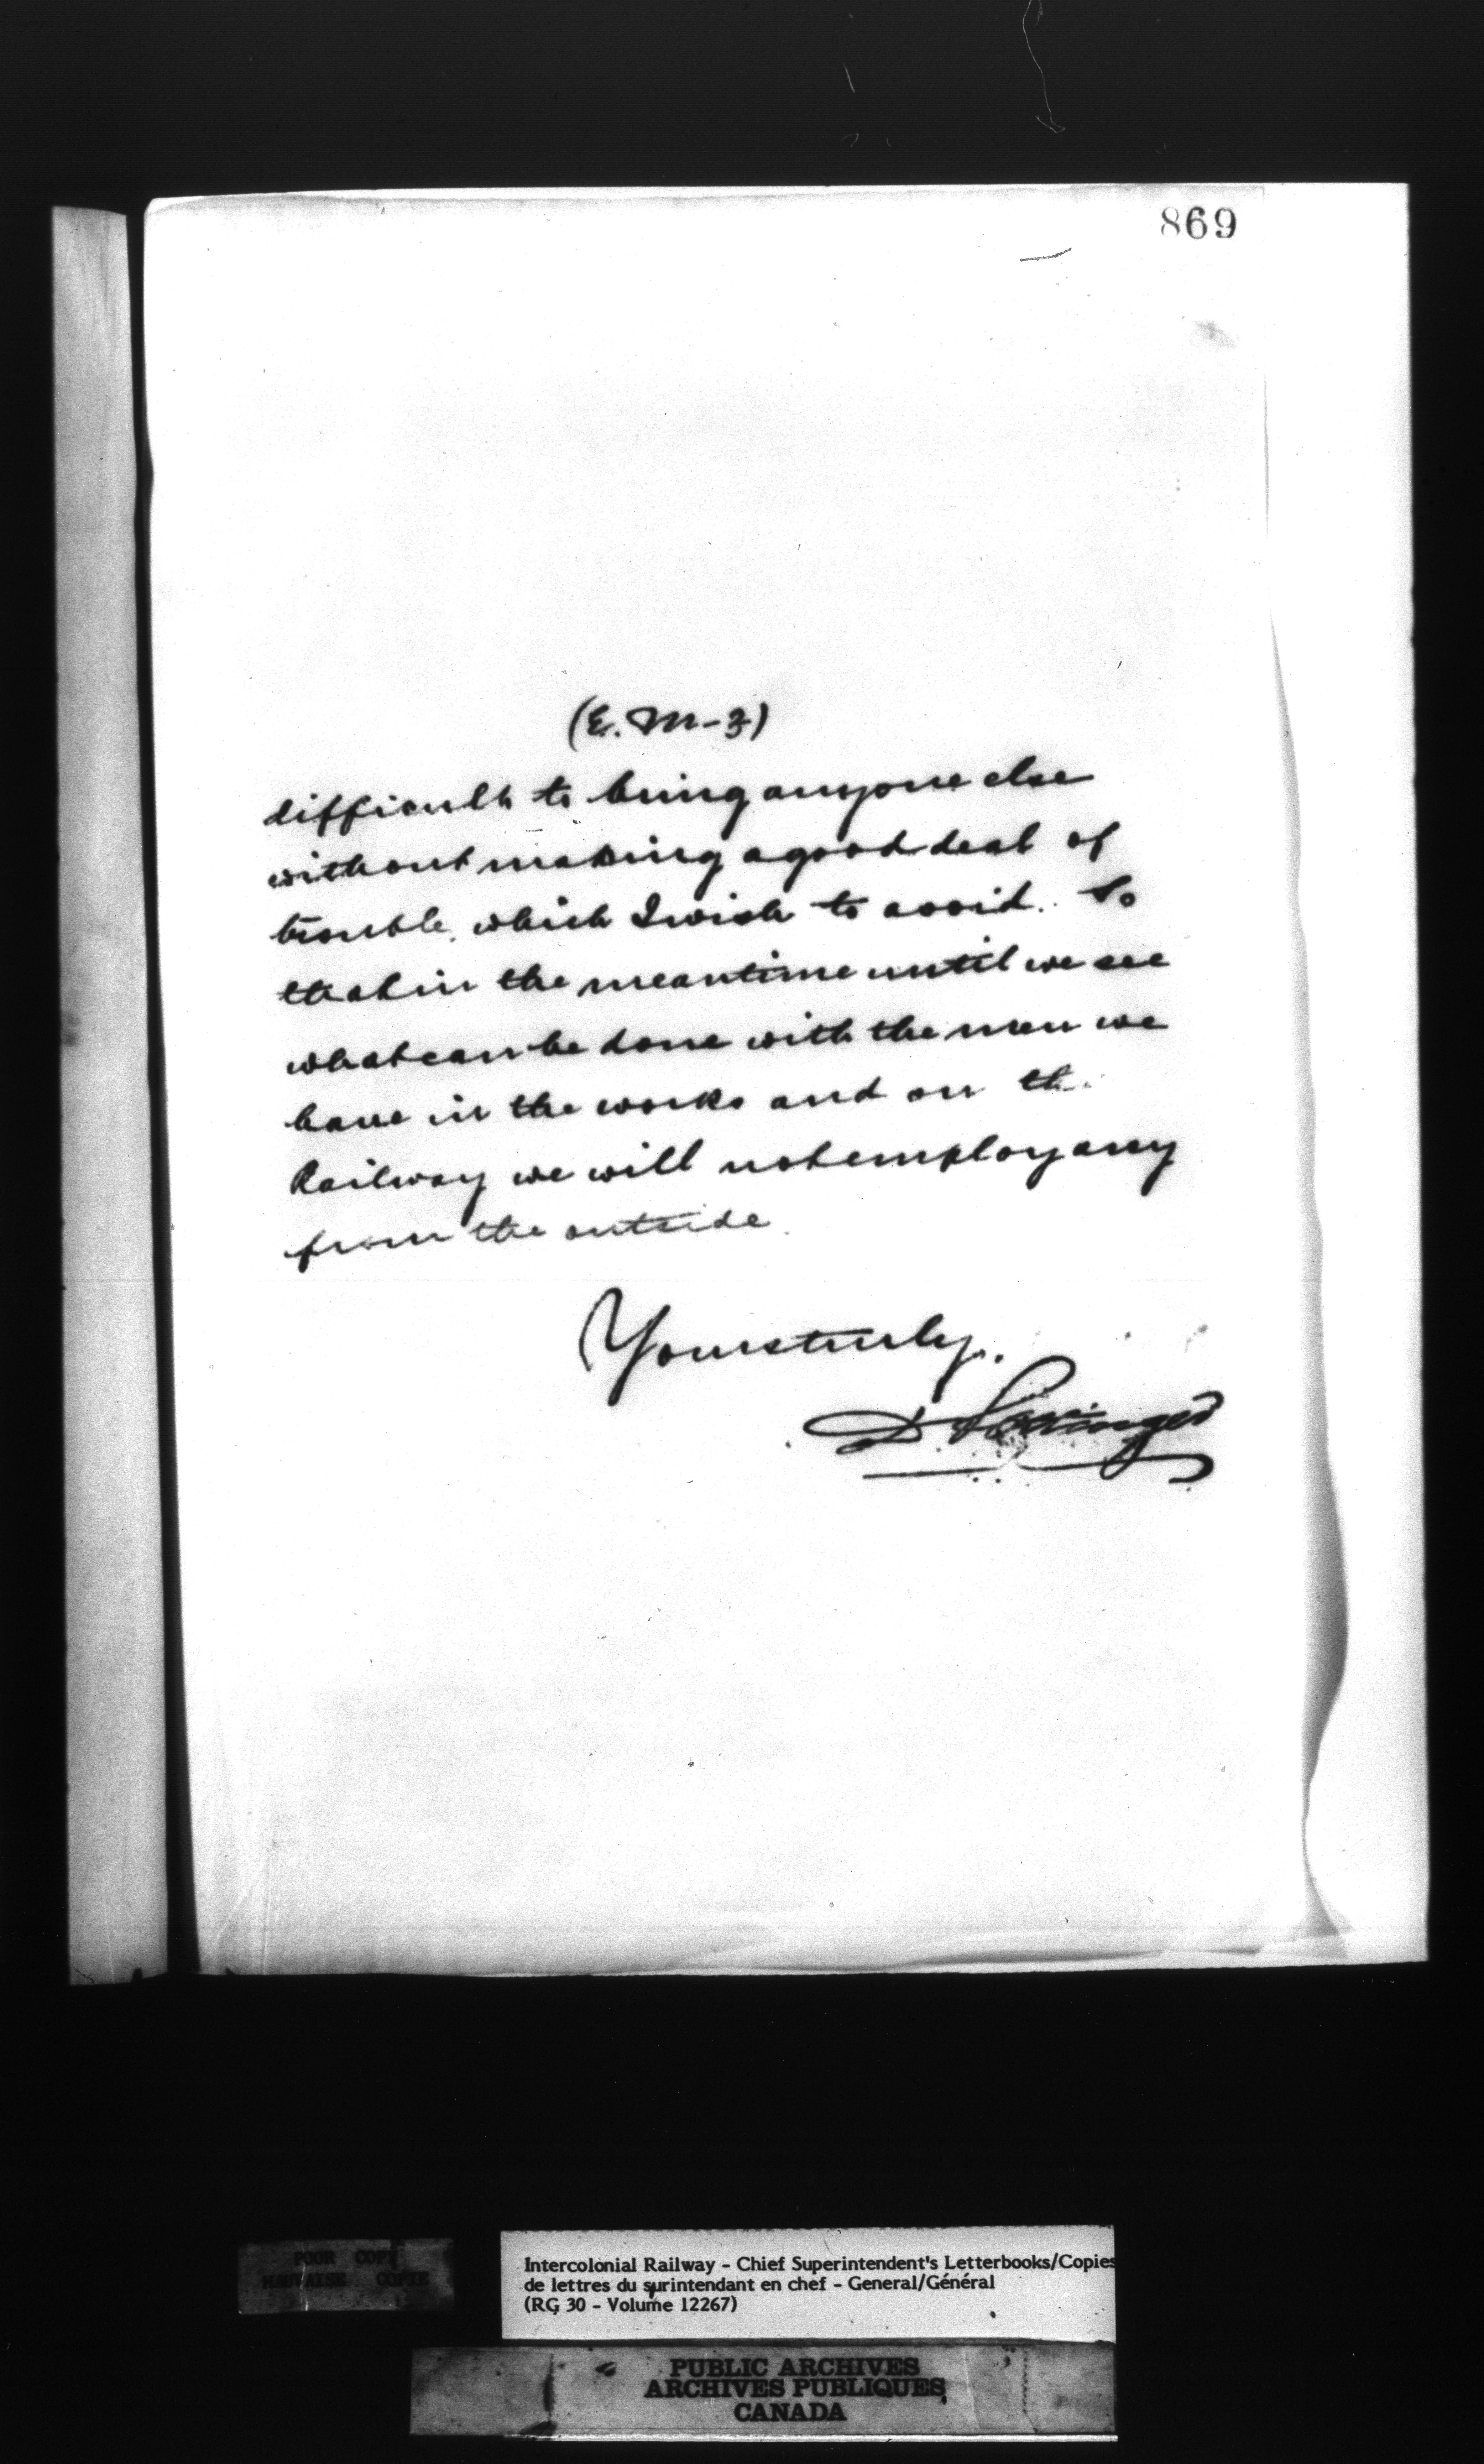 869
(E. M-3)
difficult to bring anyone else
without making a good deal of
trouble, which I wish to avoid. So
that in the meantime until we see
what can be done with the men we
have in the works and on th
Railway we will not employ any
from the outside.
Yours truly,
D. Pottinger
POOR COPY
MAUVAISE COPIE
Intercolonial Railway - Chief Superintendent's Letterbooks/Copies
de lettres du surintendant en chef - General/Général
(RG 30 - Volume 12267)
PUBLIC ARCHIVES
ARCHIVES PUBLIQUES
CANADA